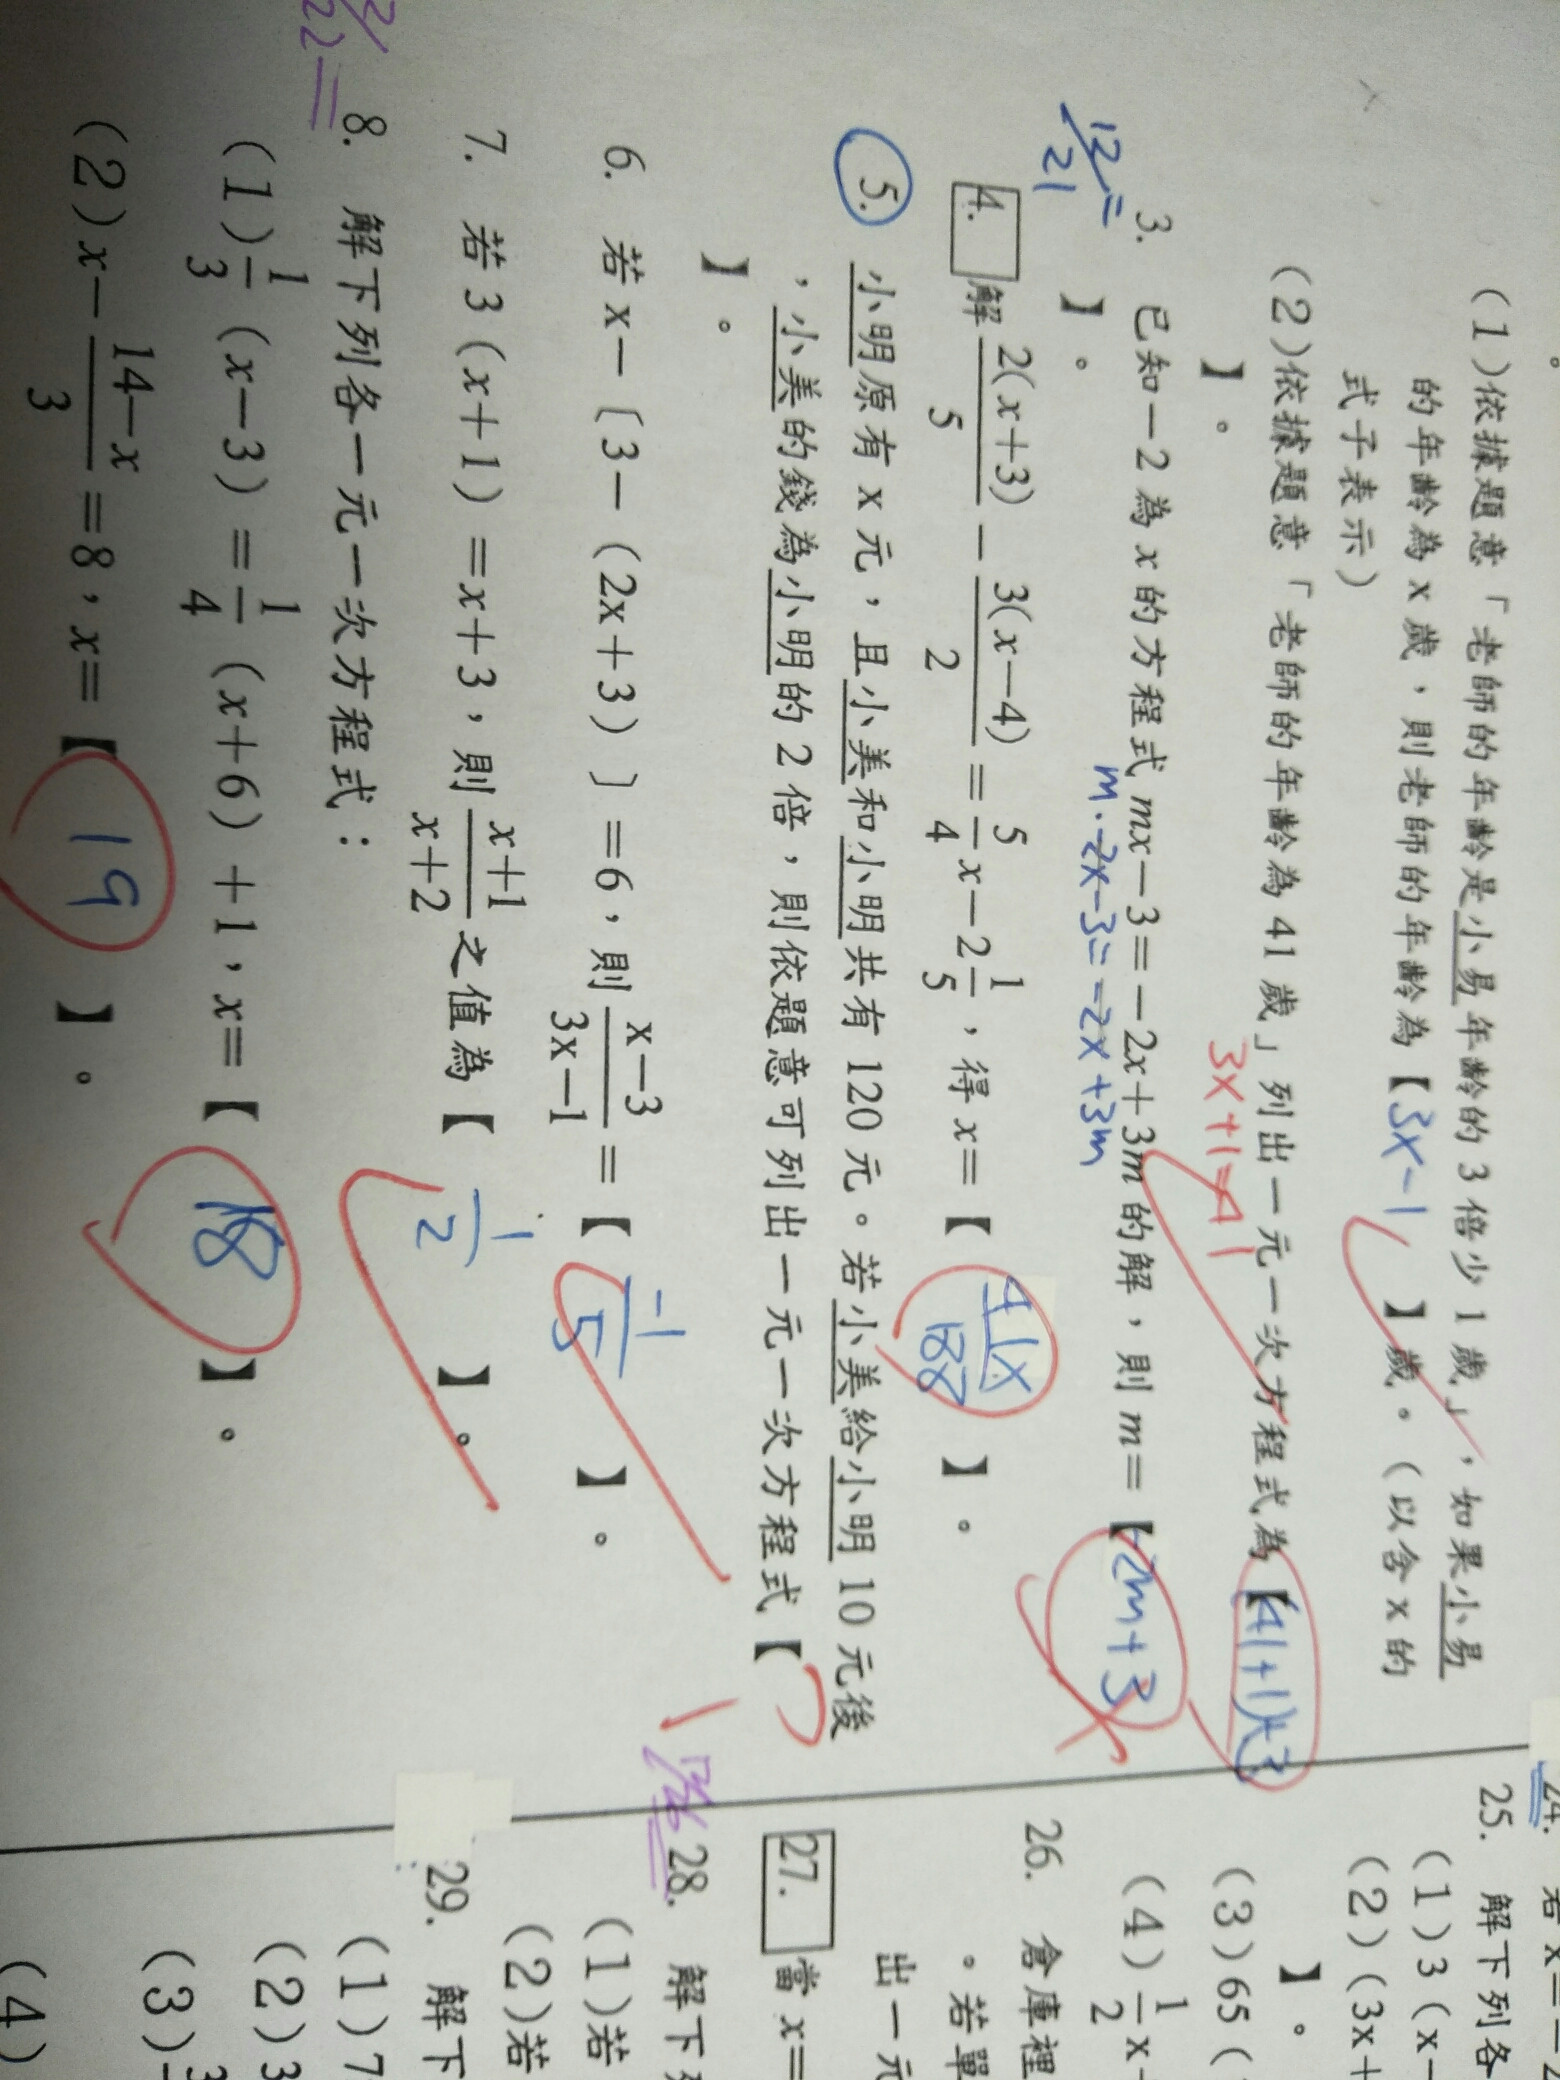 (1)依據題意「老師的年齡是小易年齡的3倍少1歲」,如果小易
的年齡為x歲,則老師的年齡為【3x-1】歲。(以含x的
式子表示)
(2)依據題意「老師的年齡為41歲」列出一元一次方程式為【(41+1)÷3
3x+1=41
】。
3. 已知-2為x的方程式mx-3=-2x+3m的解,則m=【-2m+3
m.-2x-3=-2x+3m
】。
12/21
4. 解 2(x+3)/5 - 3(x-4)/2 = 5/4 x - 2 1/5,得x=【41x/188】。
5. 小明原有x元,且小美和小明共有120元。若小美給小明10元後
,小美的錢為小明的2倍,則依題意可列出一元一次方程式【
】。
6. 若x-〔3-(2x+3)〕=6,則 x-3/3x-1 =【-1/5】。
7. 若3(x+1)=x+3,則 x+1/x+2 之值為【1/2】。
8. 解下列各一元一次方程式:
(1) 1/3 (x-3) = 1/4 (x+6)+1,x=【18】。
(2) x- 14-x/3 =8,x=【19】。
24. 若x=-2
25. 解下列各
(1)3(x-
(2)(3x+
】。
(3)65(
(4) 1/2 x-
26. 倉庫裡
。若單
出一元
27. 當x=
28. 解下
(1)若
(2)若
29. 解下
(1)7
(2)3
(3)
(4)